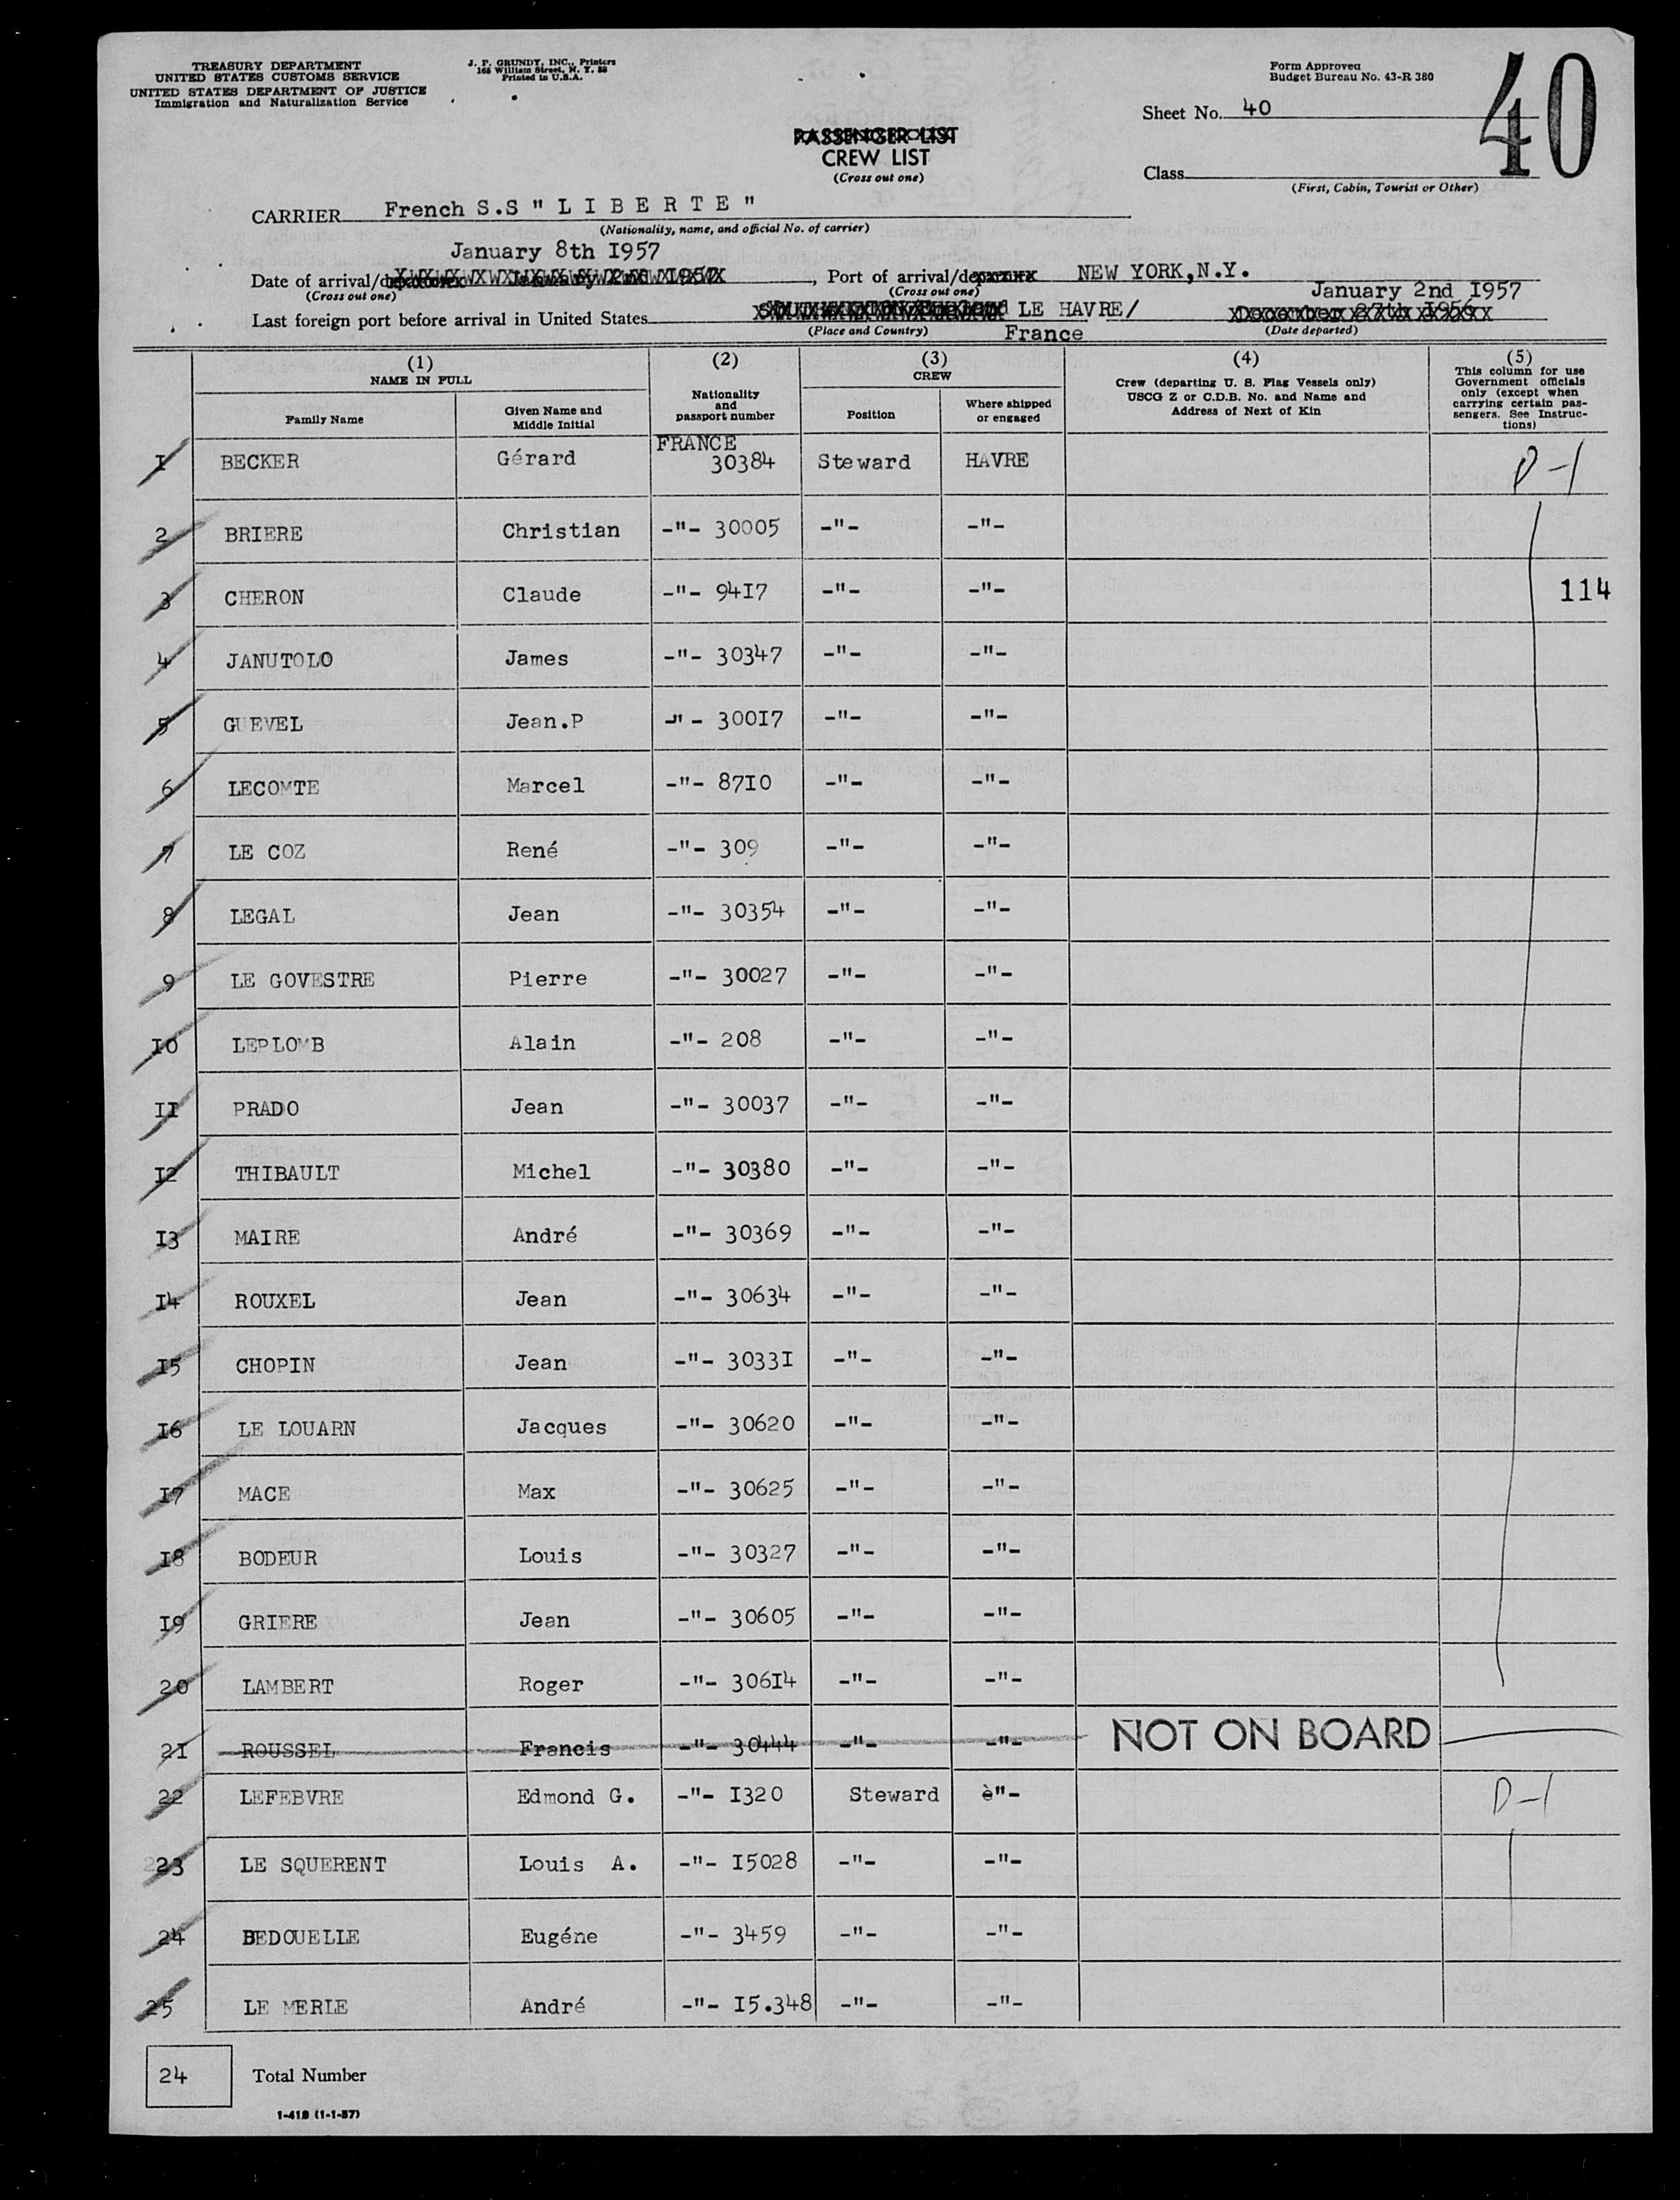 TREASURY DEPARTMENT
UNITED STATES CUSTOMS SERVICE
UNITED STATES DEPARTMENT OF JUSTICE
Immigration and Naturalization Service
J. P. GRUNDY, INC., Printers
165 William Street, N. Y. 38
Printed in U.S.A.
Form Approved
Budget Bureau No. 43-R 380
Sheet No. 40
40
PASSENGER LIST
CREW LIST
(Cross out one)
Class
(First, Cabin, Tourist or Other)
CARRIER French S.S " L I B E R T E "
(Nationality, name, and official No. of carrier)
January 8th I957
Date of arrival/departure January 2nd I957, Port of arrival/departure NEW YORK,N.Y.
(Cross out one) (Cross out one)
January 2nd I957
Last foreign port before arrival in United States LE HAVRE/ December 27th I956
(Place and Country) France (Date departed)
(1) NAME IN FULL (2) (3) CREW (4) (5)
Family Name Given Name and Middle Initial Nationality and passport number Position Where shipped or engaged Crew (departing U. S. Flag Vessels only) USCG Z or C.D.B. No. and Name and Address of Next of Kin This column for use Government officials only (except when carrying certain passengers. See Instructions)
FRANCE
I BECKER Gérard 30384 Steward HAVRE D-1
2 BRIERE Christian -"- 30005 -"- -"-
3 CHERON Claude -"- 94I7 -"- -"- 114
4 JANUTOLO James -"- 30347 -"- -"-
5 GUEVEL Jean.P -"- 300I7 -"- -"-
6 LECOMTE Marcel -"- 87I0 -"- -"-
7 LE COZ René -"- 309 -"- -"-
8 LEGAL Jean -"- 30354 -"- -"-
9 LE GOVESTRE Pierre -"- 30027 -"- -"-
I0 LEPLOMB Alain -"- 208 -"- -"-
II PRADO Jean -"- 30037 -"- -"-
I2 THIBAULT Michel -"- 30380 -"- -"-
I3 MAIRE André -"- 30369 -"- -"-
I4 ROUXEL Jean -"- 30634 -"- -"-
I5 CHOPIN Jean -"- 3033I -"- -"-
I6 LE LOUARN Jacques -"- 30620 -"- -"-
I7 MACE Max -"- 30625 -"- -"-
I8 BODEUR Louis -"- 30327 -"- -"-
I9 GRIERE Jean -"- 30605 -"- -"-
20 LAMBERT Roger -"- 306I4 -"- -"-
2I ROUSSEL Francis -"- 30444 -"- -"- NOT ON BOARD
22 LEFEBVRE Edmond G. -"- I320 Steward è"- D-1
23 LE SQUERENT Louis A. -"- I5028 -"- -"-
24 BEDOUELLE Eugéne -"- 3459 -"- -"-
25 LE MERLE André -"- I5.348 -"- -"-
24 Total Number
1-418 (1-1-57)